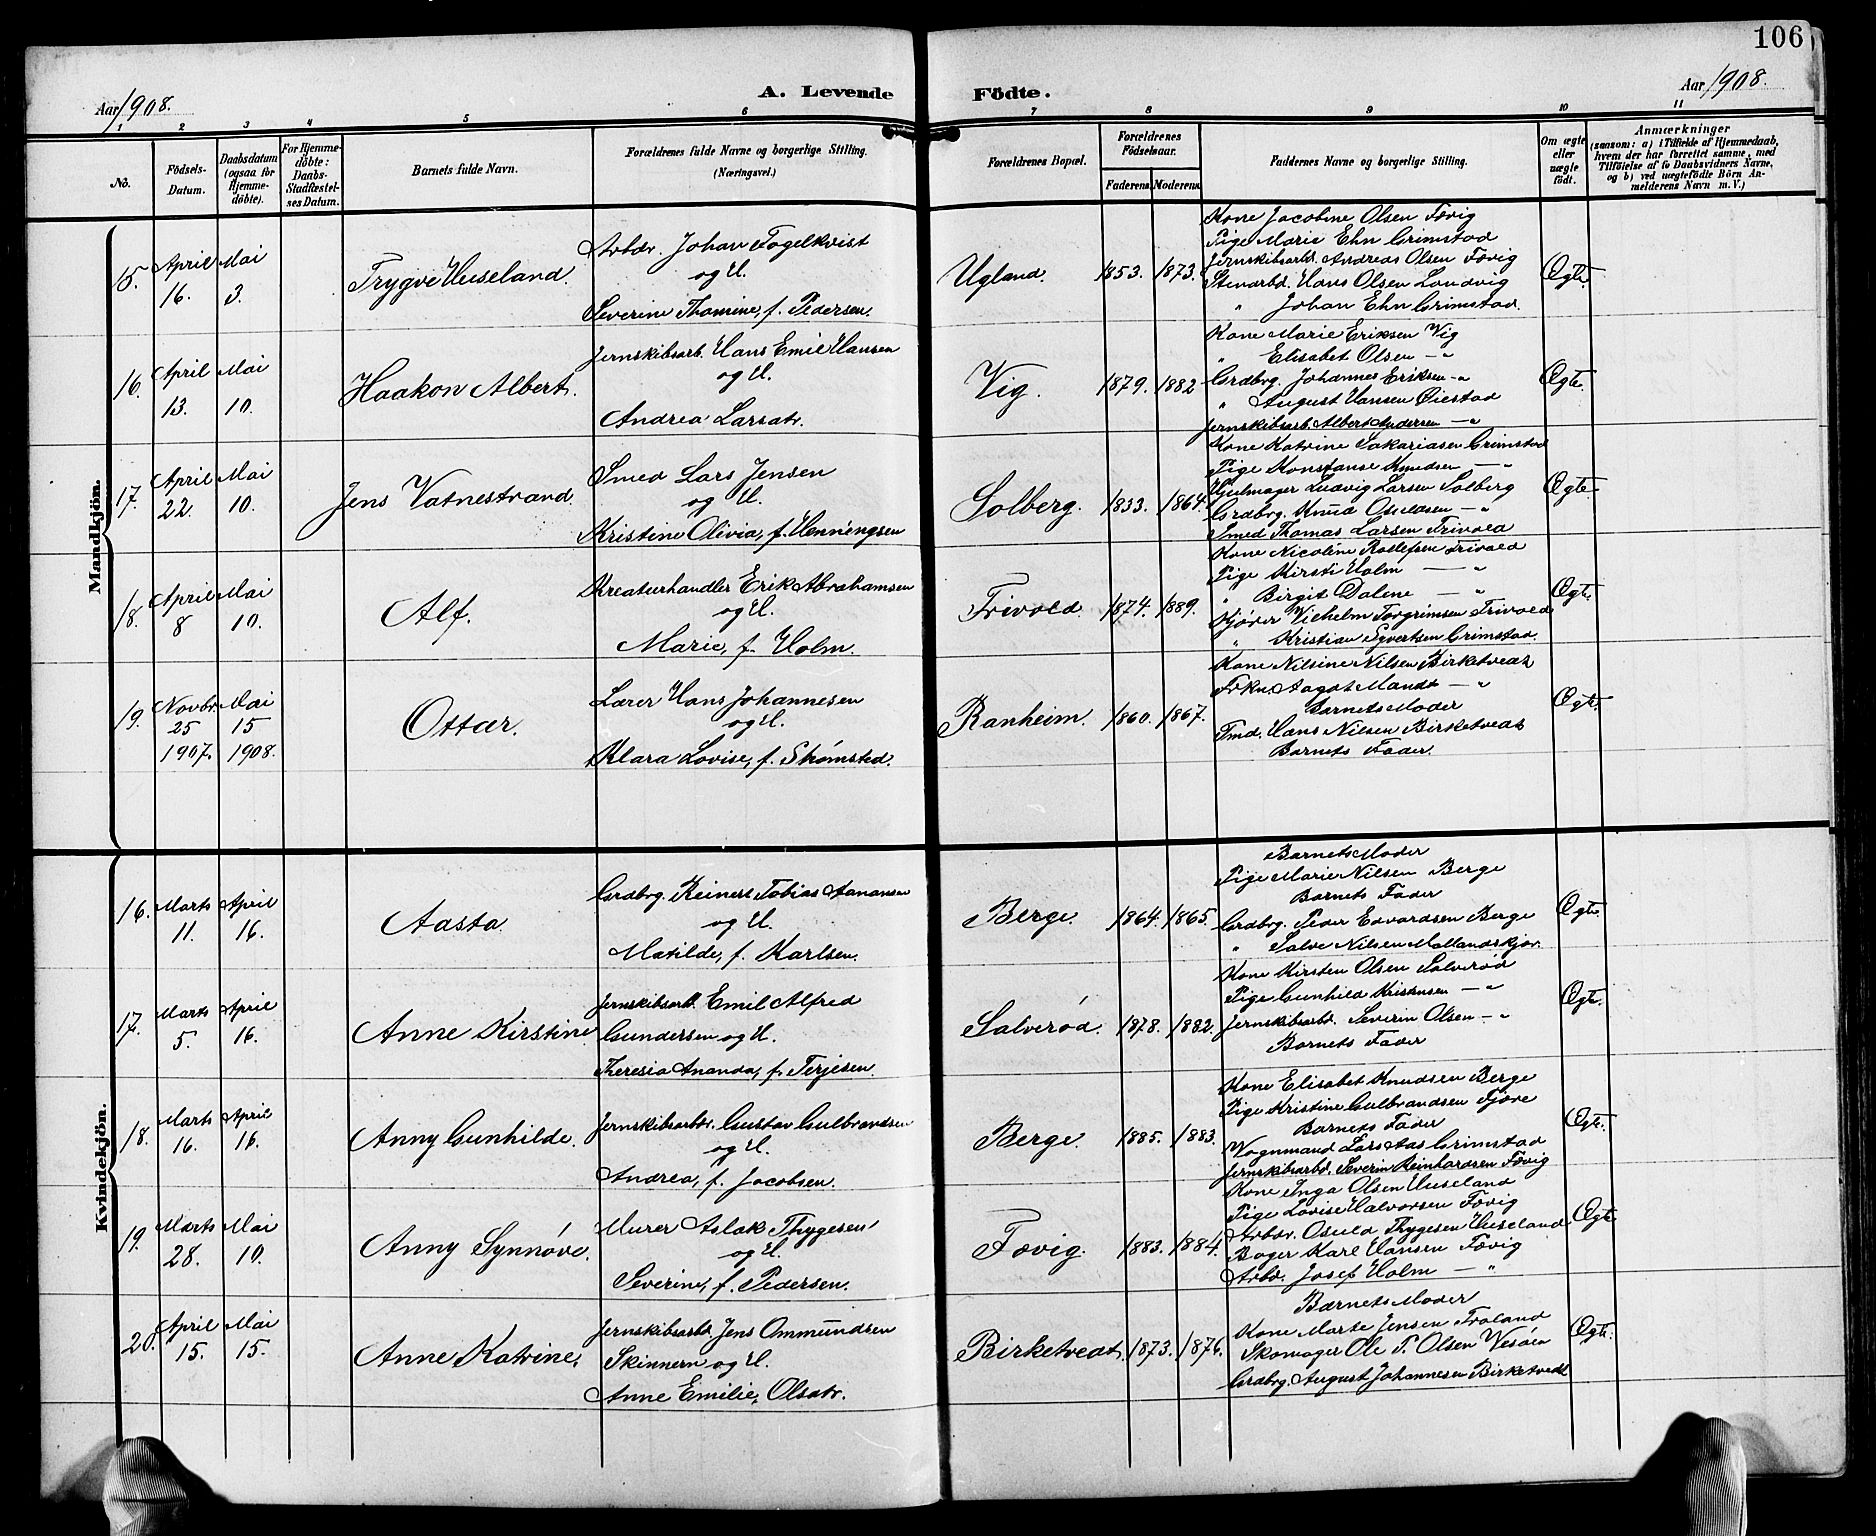 106
Aar 1908.
A. Levende
Födte.
Aar 1908.
1 2 3 4 5 6 7 8 9 10 11
No.
Födsels-Datum.
Daabsdatum (ogsaa for Hjemme-döbte).
For Hjemme-döbte: Daabs-Stadfæstel-ses Datum.
Barnets fulde Navn.
Forældrenes fulde Navne og borgerlige Stilling.
(Næringsvei.)
Forældrenes Bopæl.
Forældrenes Födselsaar.
Faderens. Moderens.
Faddernes Navne og borgerlige Stilling.
Om ægte eller uægte født.
Anmærkninger
(saasom: a) i Tilfælde af Hjemmedaab, hvem der har forrettet samme, med Tilföielse af to Daabsvidners Navne, og b) ved uægtefödte Börn An-melderens Navn m. V.)
Mandkjön.
15. April 16. Mai 3.
Trygve Huseland.
Arbdr. Johan Fogelkvist
og H.
Severine Thomine, f. Pedersen.
Ugland. 1853. 1873.
Kone Jacobine Olsen Fævig
Pige Marie Ehn Grimstad
Jernskibsarbd. Andreas Olsen Fævig
Stenarbd. Hans Olsen Landvig
" Johan Ehn Grimstad.
Ægte.
16. April 13. Mai 10.
Haakon Albert.
Jernskibsarb. Hans Emil Hansen
og H.
Andrea Larsatr.
Vig. 1879. 1882
Kone Marie Eriksen Vig
" Elisabet Olsen — "
Grdbrg. Johannes Eriksen — "
" August Hansen Øiestad
Jernskibsarb. Albert Andersen — "
Ægte.
17. April 22. Mai 10.
Jens Vatnestrand
Smed Lars Jensen
og H.
Kristine Olivia, f. Henningsen
Solberg. 1833. 1864.
Kone Katrine Sakariasen Grimstad
Pige Konstanse Knudsen — "
Hjulmager Ludvig Larsen Solberg
Grdbrg. Knud Osuldsen — "
Smed Thomas Larsen Frivold
Ægte.
18. April 8 Mai 10.
Alf.
Kreaturhandler Erik Abrahamsen
og H.
Marie, f. Holm.
Frivold. 1874. 1889.
Kone Nicoline Rollefsen Frivold
Pige Kirsti Holm — "
" Birgit Dalene — "
Kjører Vilhelm Torgrimsen Frivold
" Kristian Syvertsen Grimstad.
Ægte.
19. Novbr. 25 1907. Mai 15 1908.
Ottar.
Lærer Hans Johannesen
og H.
Klara Lovise, f. Skømsted.
Ranheim. 1860. 1867.
Kone Nilsine Nilsen Birketvedt
Frkn. Aagot Mandt — "
Barnets Moder
Tmd. Hans Nilsen Birketvedt
Barnets Fader.
Ægte.
Kvindekjön.
16. Marts 11. April 16.
Aasta.
Grdbrg. Reinert Tobias Aanansen
og H.
Matilde, f. Karlsen.
Berge. 1864. 1865.
Barnets Moder
Pige Marie Nilsen Berge
Barnets Fader
Grdbrg. Peder Edvardsen Berge
" Salve Nilsen Mollandskjær.
Ægte.
17. Marts 5. April 16.
Anne Kirstine.
Jernskibsarb. Emil Alfred
Gundersen og H.
Theresia Ananda, f. Terjesen.
Salverød. 1878. 1882.
Kone Kirsten Olsen Salverød
Pige Gunhild Kristensen — "
Jernskibsarbd. Severin Olsen — "
Barnets Fader
Ægte.
18. Marts 16. April 16.
Anny Gunhilde.
Jernskibsarbdr. Gustav Gulbrandsen
og H.
Andrea, f. Jacobsen.
Berge. 1885. 1883.
Kone Elisabet Knudsen Berge
Pige Kristine Gulbrandsen Fjære
Barnets Fader
Vognmand Lars Aas Grimstad
Jernskibsarbd. Severin Reinhardsen Fævig
Ægte.
19. Marts 28. Mai 10.
Anny Synnøve.
Murer Aslak Thygesen
og H.
Severine, f. Pedersen.
Fævig. 1883. 1884.
Kone Inga Olsen Huseland
Pige Lovise Halvorsen Fævig
Arbdr. Osuld Thygesen Huseland
Bager Karl Hansen Fævig
Arbd. Josef Holm — "
Ægte
20. April 15. Mai 15.
Anne Katrine.
Jernskibsarbd. Jens Ommundsen
Skinnern og H.
Anne Emilie, Olsatr.
Birketvedt. 1873. 1876.
Barnets Moder
Kone Marte Jensen Froland
Skomager Ole P. Olsen Vesøen
Grdbrg. August Johannesen Birketvedt
Ægte.